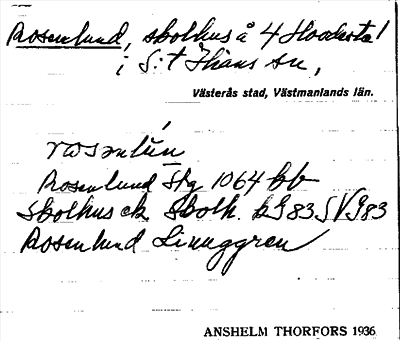 Rosenlund, skolhus å 4 Hovdestal
i S:t Ilians sn,
Västerås stad, Västmanlands län.
rosn lun
Rosenlund Stg 1064 bb
skolhus ek. Skolh. kG 83 SVG83
Rosenlund Linnggren
ANSHELM THORFORS 1936